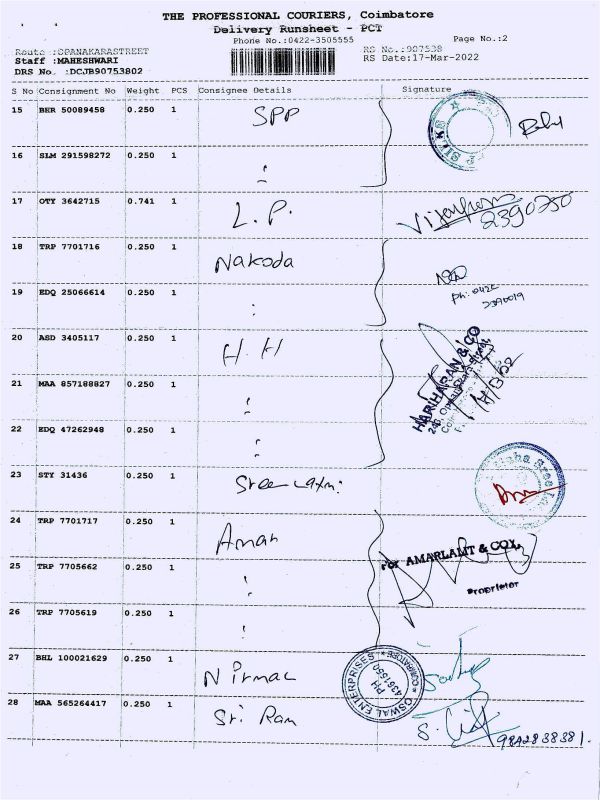 THE PROFESSIONAL COURIERS, Coimbatore
Delivery Runsheet - PCT
Phone No.:0422-3505555
Page No.:2
Route :OPANAKARASTREET
RS No.:907538
Staff :MAHESHWARI
RS Date:17-Mar-2022
DRS No. :DCJB90753802
S No Consignment No Weight PCS Consignee Details Signature
15 BER 50089458 0.250 1 SPP
SILKS
16 SLM 291598272 0.250 1 "
17 OTY 3642715 0.741 1 L.P.
2390250
18 TRP 7701716 0.250 1 Nakoda
Ph: 0422
2390019
19 EDQ 25066614 0.250 1 :
20 ASD 3405117 0.250 1 H.H
HARIHARAN & CO
21 MAA 857188827 0.250 1 "
22 EDQ 47262948 0.250 1 "
23 STY 31436 0.250 1 Sree Laxmi
24 TRP 7701717 0.250 1 Aman
For AMARLAMT & COX,
Proprietor
25 TRP 7705662 0.250 1 "
26 TRP 7705619 0.250 1 "
27 BHL 100021629 0.250 1 Nirmal
OSWAL ENTERPRISES * COIMBATORE *
PH
4361550
28 MAA 565264417 0.250 1 Sri Ram
9842838381.